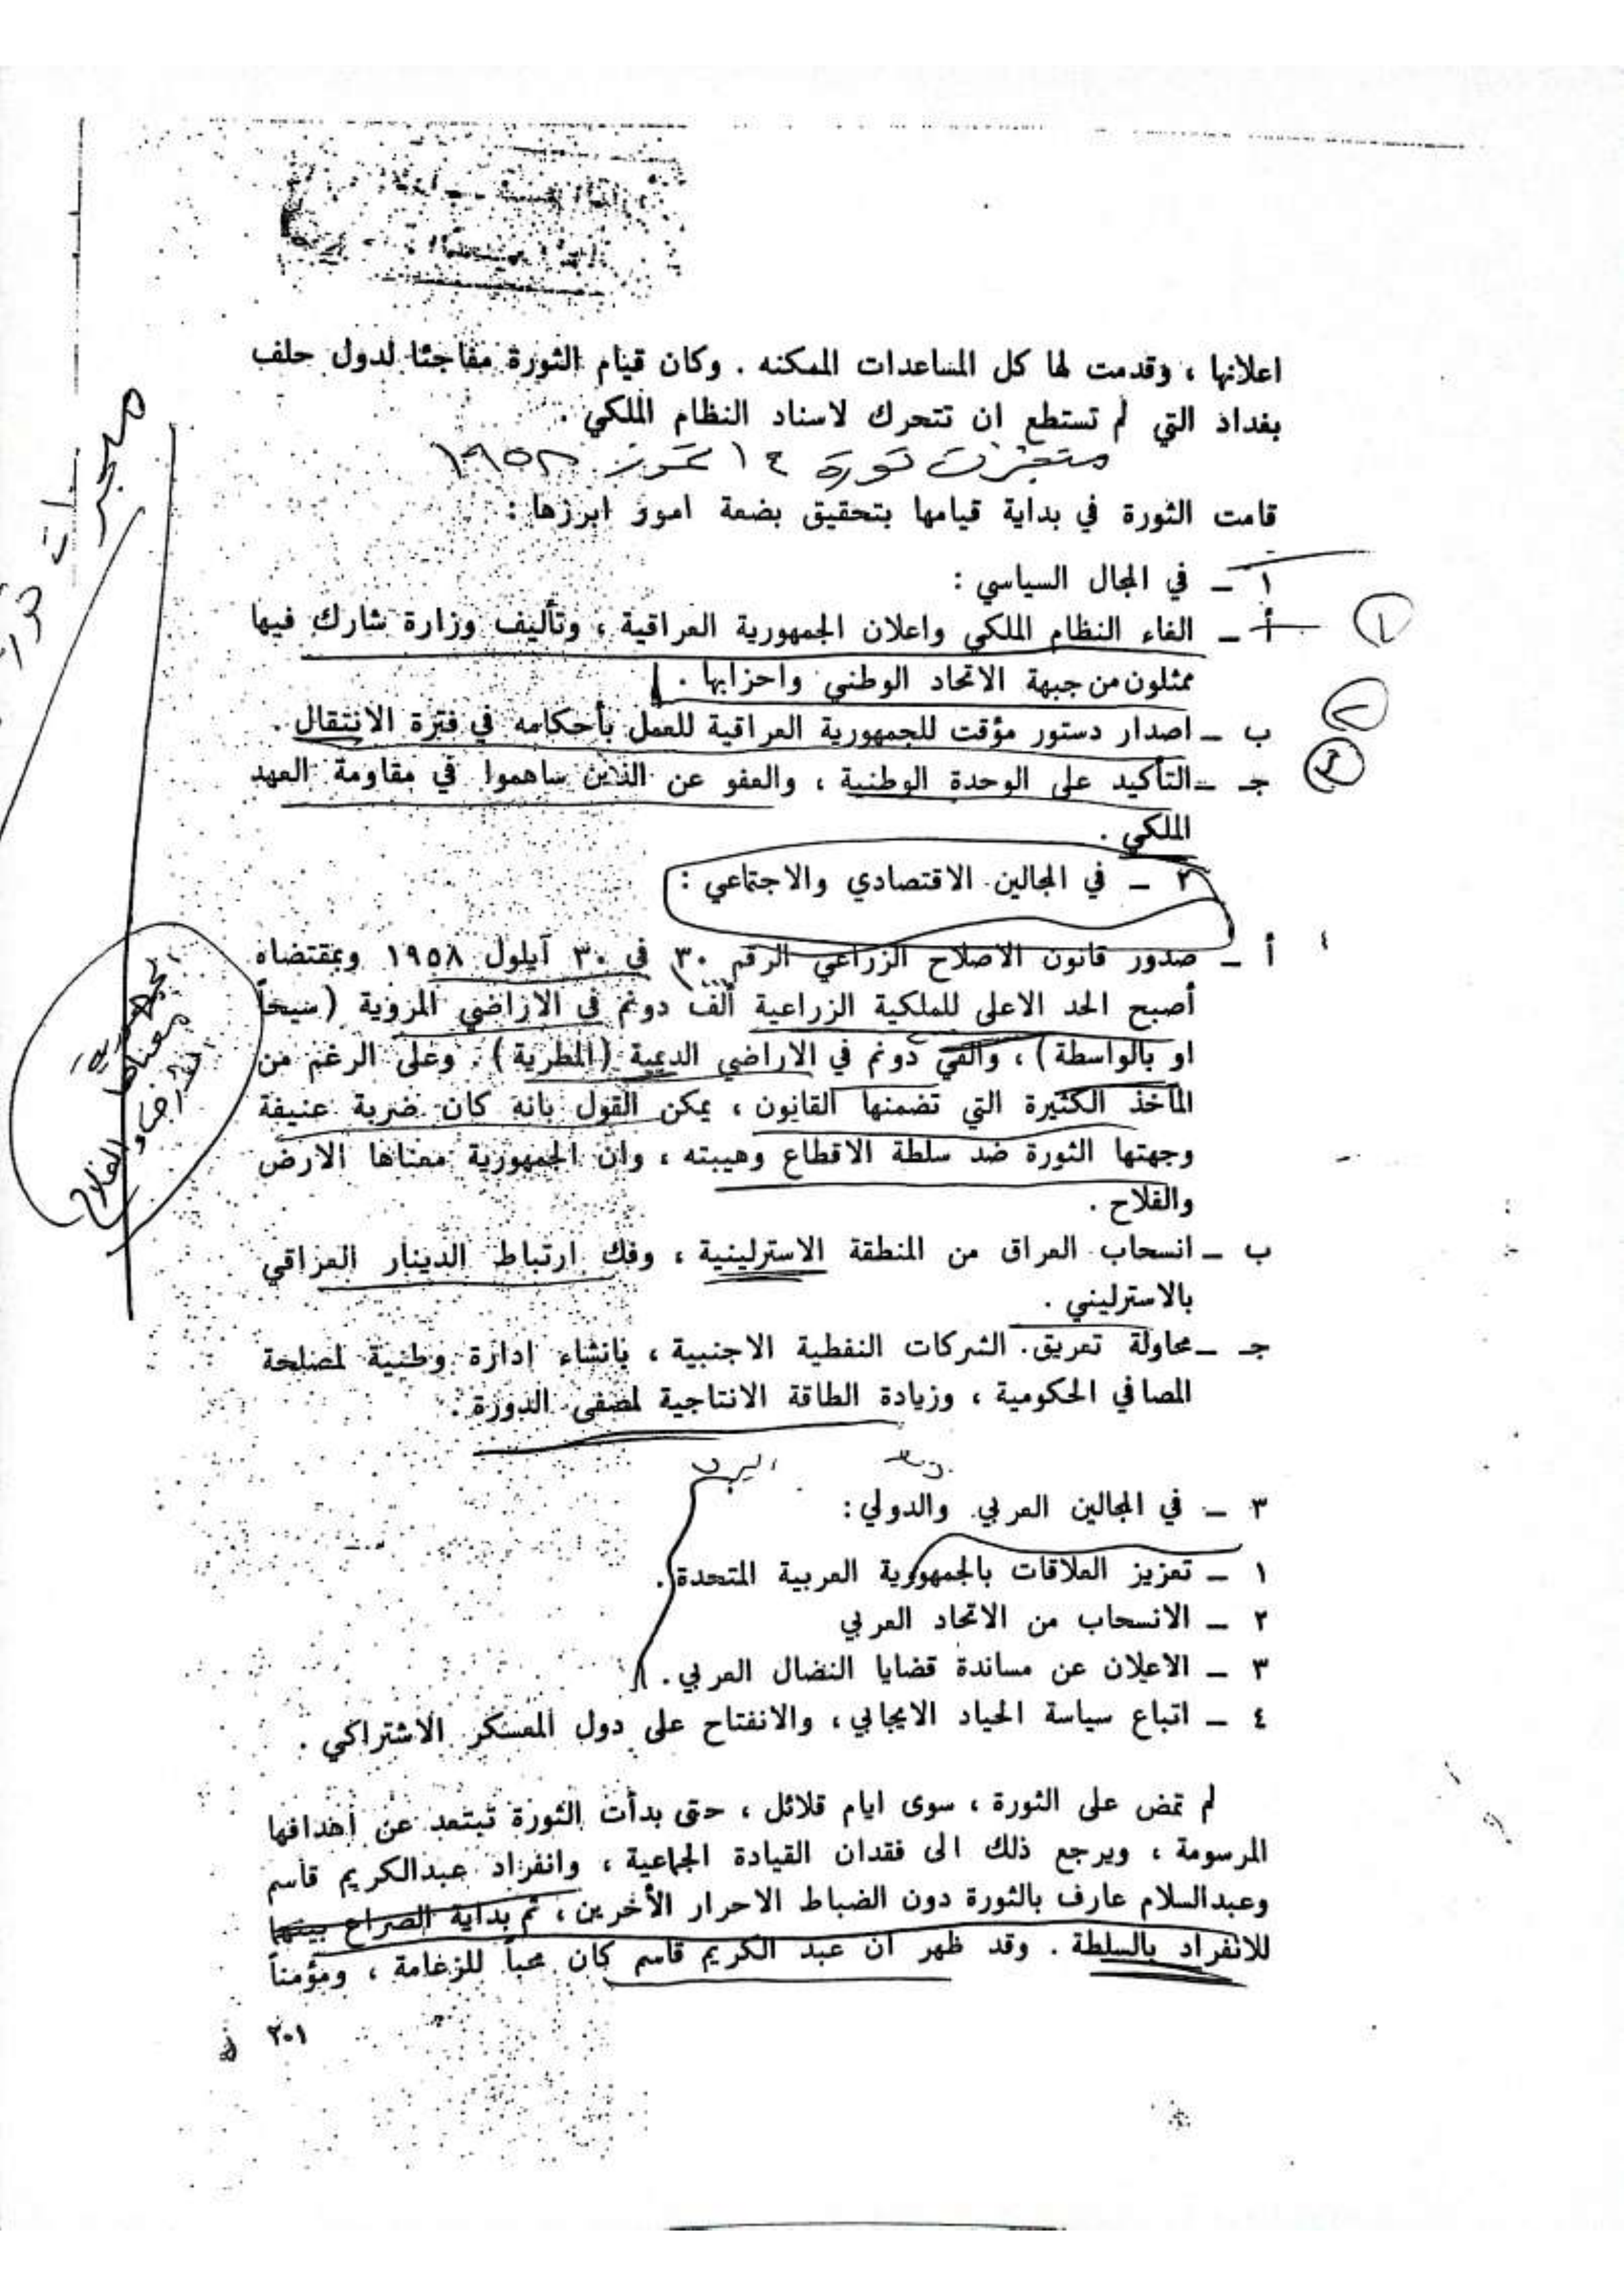 اعلانها ، وقدمت لها كل المساعدات الممكنه . وكان قيام الثورة مفاجئا لدول حلف
بغداد التي لم تستطع ان تتحرك لاسناد النظام الملكي .
منجزات ثورة ١٤ تموز ١٩٥٨
قامت الثورة في بداية قيامها بتحقيق بضعة امور ابرزها :
١ ـ في المجال السياسي :
١
أ ـ الغاء النظام الملكي واعلان الجمهورية العراقية ، وتأليف وزارة شارك فيها
ممثلون من جبهة الاتحاد الوطني واحزابها .
٢
ب ـ اصدار دستور مؤقت للجمهورية العراقية للعمل بأحكامه في فترة الانتقال .
٣
جـ ـ التأكيد على الوحدة الوطنية ، والعفو عن الذين ساهموا في مقاومة العهد
الملكي .
٢ ـ في المجالين الاقتصادي والاجتماعي :
أ ـ صدور قانون الاصلاح الزراعي الرقم ٣٠ في ٣٠ آيلول ١٩٥٨ وبمقتضاه
أصبح الحد الاعلى للملكية الزراعية ألف دونم في الاراضي المروية (سيحاً
او بالواسطة) ، والفي دونم في الاراضي الديمية (المطرية) . وعلى الرغم من
المآخذ الكثيرة التي تضمنها القانون ، يمكن القول بانه كان ضربة عنيفة
وجهتها الثورة ضد سلطة الاقطاع وهيبته ، وان الجمهورية معناها الارض
والفلاح .
الجمهورية
معناها
الارض والفلاح
ب ـ انسحاب العراق من المنطقة الاسترلينية ، وفك ارتباط الدينار العراقي
بالاسترليني .
جـ ـ محاولة تعريق الشركات النفطية الاجنبية ، بانشاء إدارة وطنية لمصلحة
المصافي الحكومية ، وزيادة الطاقة الانتاجية لمصفى الدورة .
٣ ـ في المجالين العربي والدولي :
١ ـ تعزيز العلاقات بالجمهورية العربية المتحدة .
٢ ـ الانسحاب من الاتحاد العربي
٣ ـ الاعلان عن مساندة قضايا النضال العربي .
٤ ـ اتباع سياسة الحياد الايجابي ، والانفتاح على دول المعسكر الاشتراكي .
لم تمض على الثورة ، سوى ايام قلائل ، حتى بدأت الثورة تبتعد عن أهدافها
المرسومة ، ويرجع ذلك الى فقدان القيادة الجماعية ، وانفراد عبدالكريم قاسم
وعبدالسلام عارف بالثورة دون الضباط الاحرار الأخرين ، ثم بداية الصراع بينهما
للانفراد بالسلطة . وقد ظهر ان عبد الكريم قاسم كان محباً للزعامة ، ومؤمناً
٢٠١